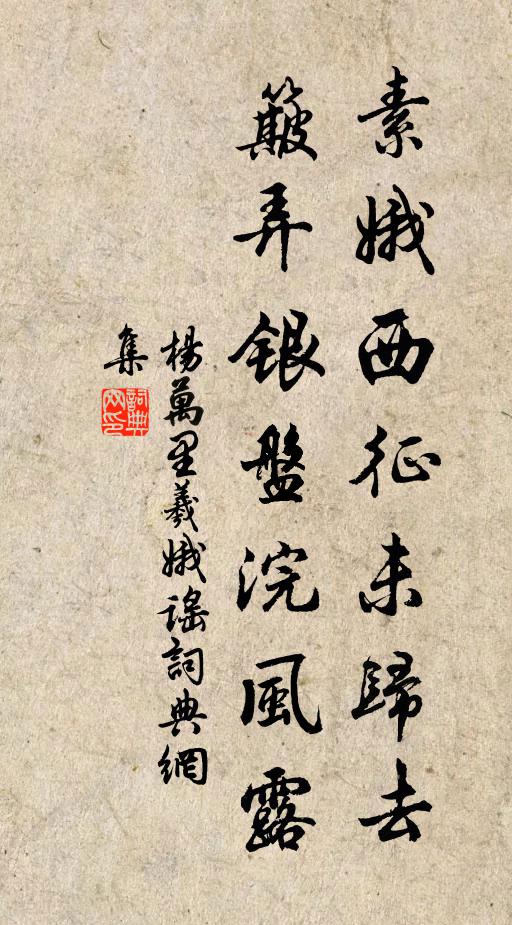 素娥西征未歸去
簸弄銀盤浣風露
楊萬里羲娥謠詞典網
集
詞典
網印